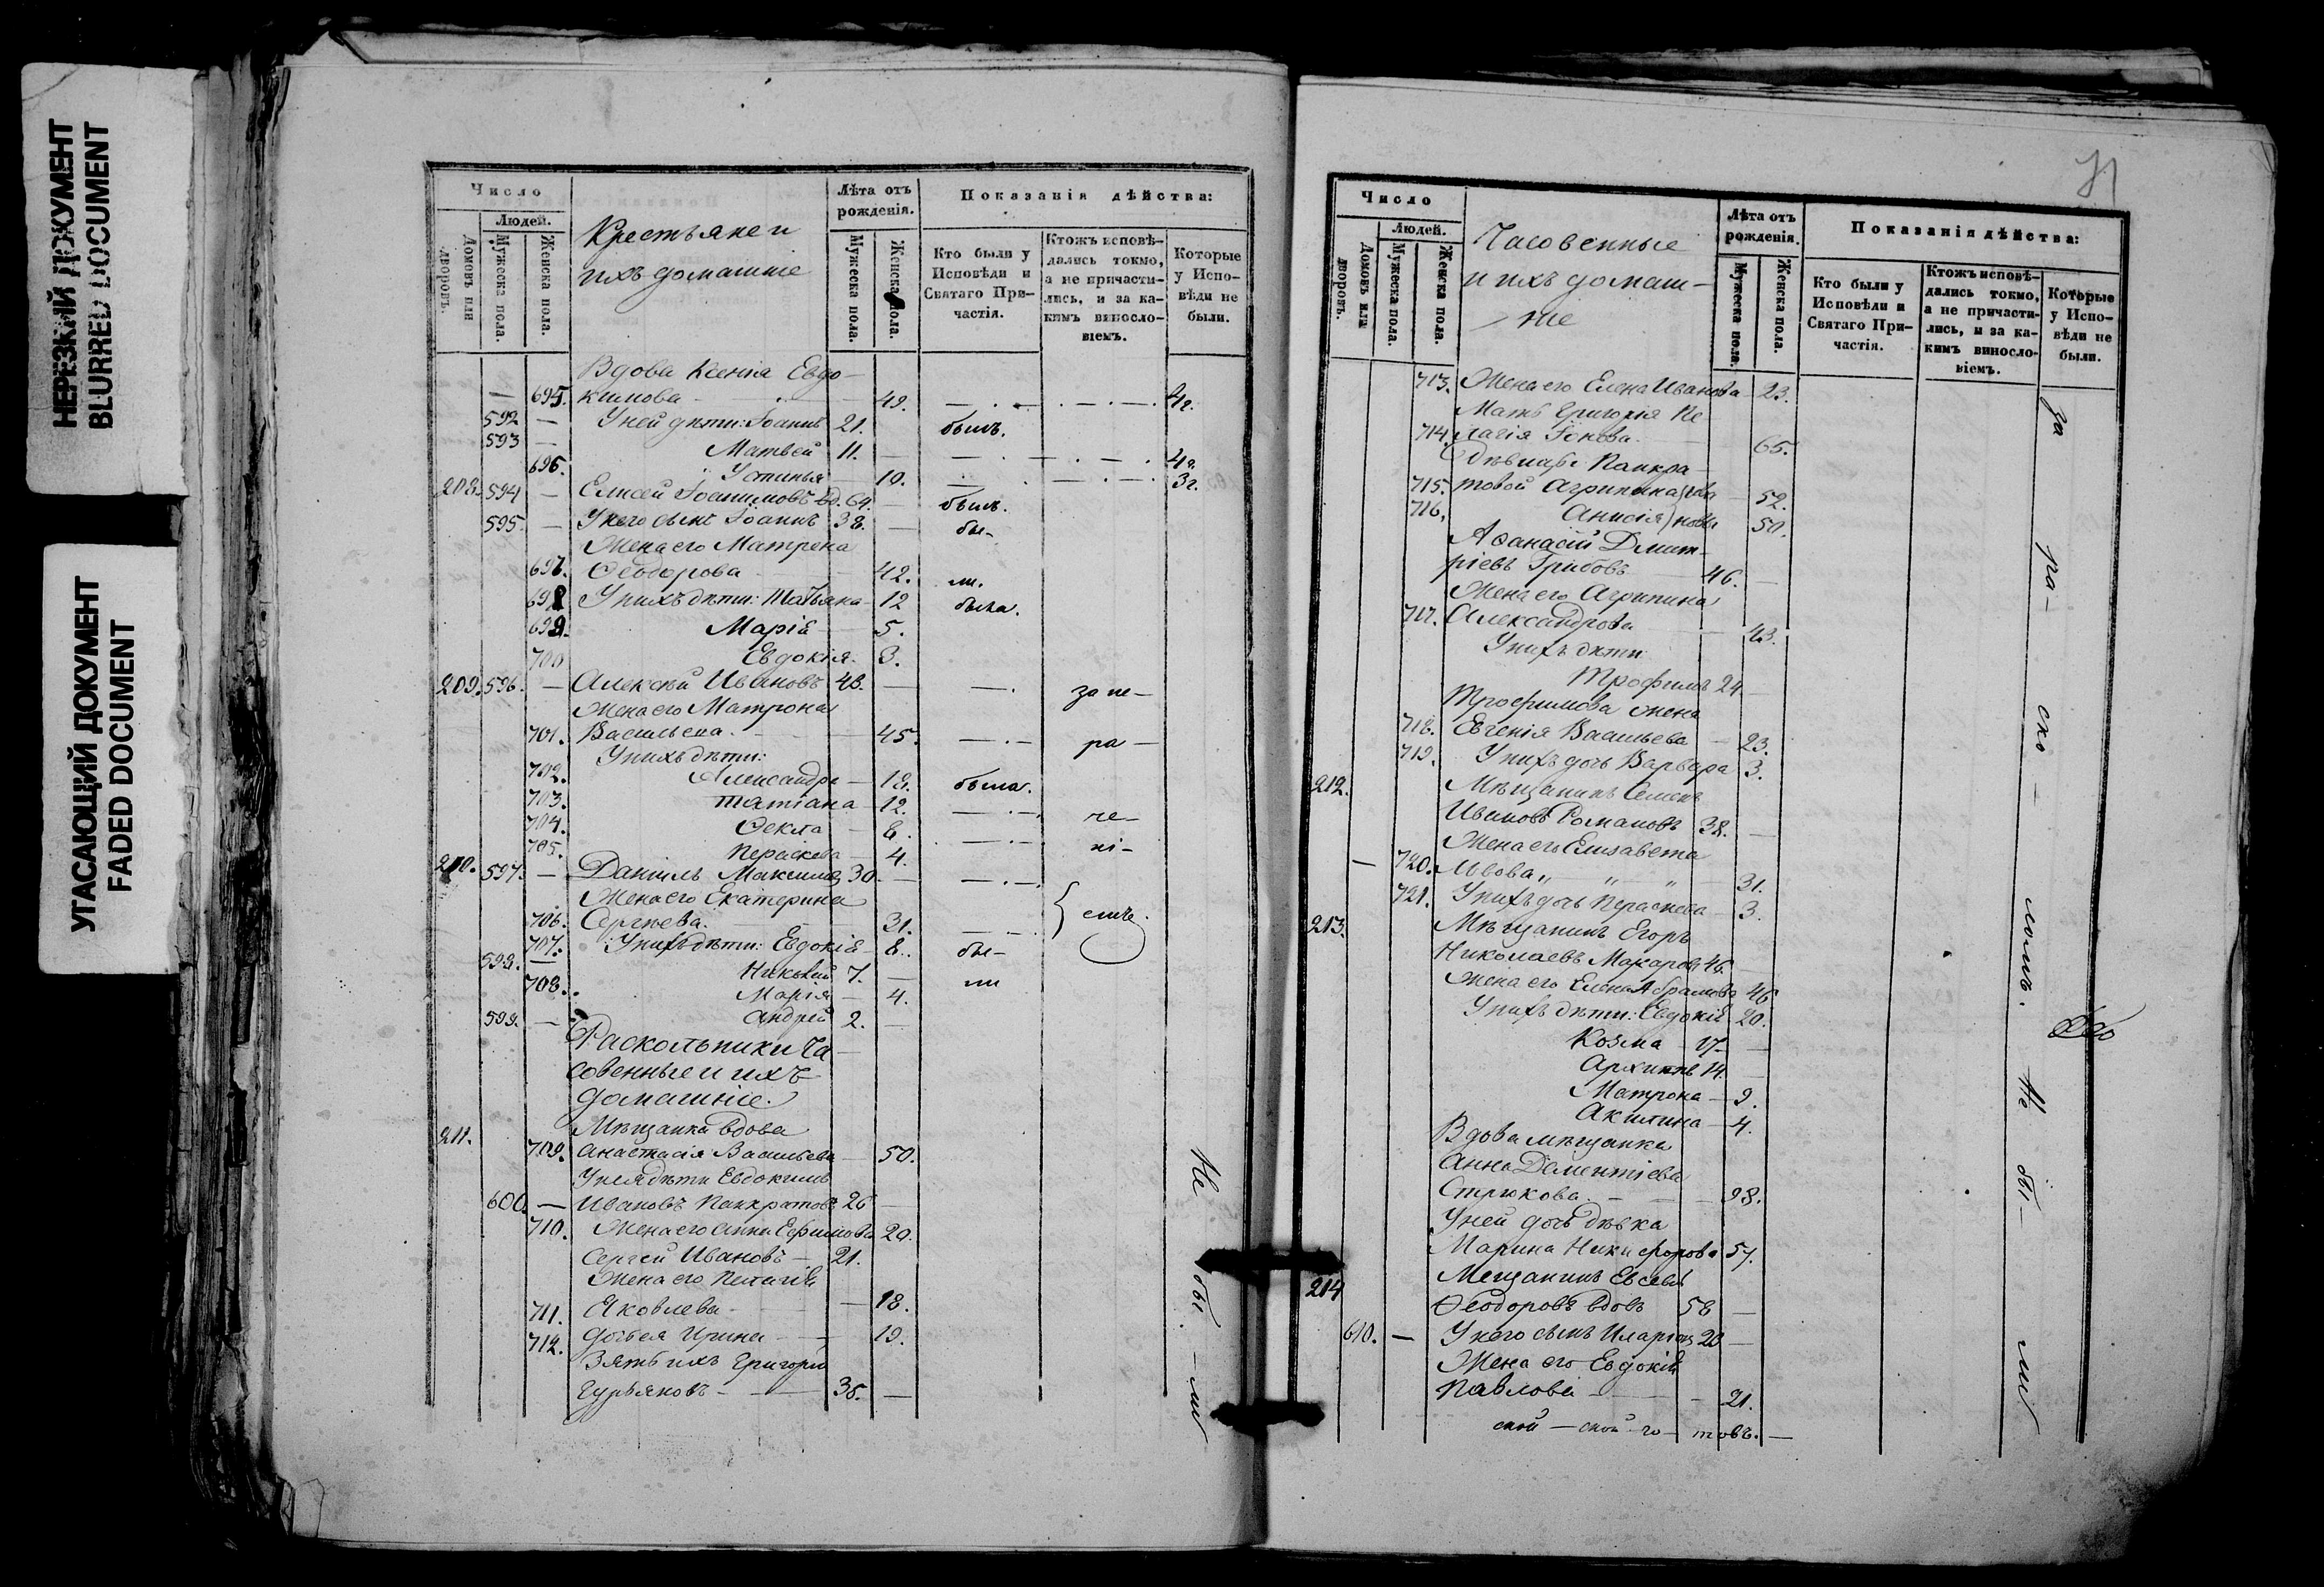 НЕРЕЗКИЙ ДОКУМЕНТ
BLURRED DOCUMENT
УГАСАЮЩИЙ ДОКУМЕНТ
FADED DOCUMENT
Число
Людей.
Домовъ или дворовъ.
Мужеска пола.
Женска пола.
Крестьяне и
ихъ домашніе
Лѣта отъ рожденія.
Мужеска пола.
Женска пола.
Показанія дѣйства:
Кто были у Исповѣди и Святаго При-частія.
Ктожъ исповѣ-дались токмо, а не причасти-лись, и за ка-кимъ винослo-віемъ.
Которые у Испо-вѣди не были.
Вдова Ксенія Евдо-
— 695. кимова — 49. 4г.
592 — У ней дѣти: Іоаннъ 21. былъ.
593 — Матвей 11. — 4г.
696. Устинья 10. 3г.
208. 594 — Елисей Іоакимовъ вд. 64. — былъ.
595. — У него сынъ Іоаннъ 38. — бы-
Жена его Матрена
697. Ѳеодорова 42. ли.
698 У нихъ дѣти: Татьяна 12 была.
699. Марія 5.
700 Евдокія 3.
209. 596. — Алексѣй Ивановъ 48. — за не-
Жена его Матрона
701. Васильева 45. ра-
У нихъ дѣти:
702. Александра 18. была.
703. Татіана 12. че-
704. Ѳекла 6. ні-
705. Пераскева 4.
210. 597. — Даніилъ Максимовъ 30. —
Жена его Екатерина
706. Сергѣева. 31. емъ.
707. У нихъ дѣти: Евдокія 8. бы-
598. — Николай 7. — ли
708. Марія 4.
599. — Андрей 2. —
Раскольники Ча-
совенные и ихъ
домашніе.
211. Мѣщанка вдова
709. Анастасія Васильева 50.
У нея дѣти Евдокимъ
600. — Ивановъ Панкратовъ 26 —
710. Жена его Анна Ефимова 20.
Сергей Ивановъ 21.
Жена его Пелагія
711. Яковлева — 18.
712. Дочь ея Ирина 19.
Зять ихъ Григорій
Гурьяновъ 35. —
Не бы-ли
Число
Людей.
Домовъ или дворовъ.
Мужеска пола.
Женска пола.
Часовенные
и ихъ домаш-
ніе
Лѣта отъ рожденія.
Мужеска пола.
Женска пола.
Показанія дѣйства:
Кто были у Исповѣди и Святаго При-частія.
Ктожъ исповѣ-дались токмо, а не причасти-лись, и за ка-кимъ винослo-віемъ.
Которые у Испо-вѣди не были.
713. Жена его Елена Иванова 23.
Мать Григорія Пе-
714. лагія Іонова. 65.
Дѣвицы Панкра-
715. товой Агрипина Ива 52.
716. Анисія нова 50.
Аѳанасій Дмит-
ріевъ Грибовъ 46. —
Жена его Агрипина
717. Александрова 43.
У нихъ дѣти
Трофимъ 24. —
Трофимова жена
718. Евгенія Васильева 23.
719. У нихъ дочь Варвара 3.
212. Мѣщанинъ Семенъ
Ивановъ Романовъ 38. —
Жена его Елизавета
— 720. Львова „ „ „ 31.
721. У нихъ дочь Пераскева 3.
213. Мѣщанинъ Егоръ
Николаевъ Макаровъ 46. —
Жена его Елена Абрамова 46
У нихъ дѣти: Евдокія 20.
Козма 17 —
Архипъ 14. —
Матрона 9.
Акилина 4.
Вдова мѣщанка
Анна Дементіева
Стрюкова. 98.
У ней дочь дѣвка
Марина Никифорова 57.
214 Мещанинъ Евсевій
Ѳеодоровъ вдовъ 58 —
610. — У него сынъ Иларіонъ 20 —
Жена его Евдокія
Павлова 21.
ской — ской — го — товъ. —
За ра- ско- ломъ. Не бы- ли